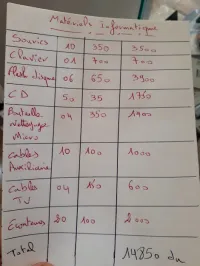 Matériels Informatique
Souris 10 350 3500
Clavier 01 700 700
Flash disque 06 650 3900
CD 50 35 1750
Bouteille
Nettoyage
Micro 04 350 1400
Cables
Auxiliaire 10 100 1000
Cables
TV 04 150 600
20 100 2000
Total 14850 da